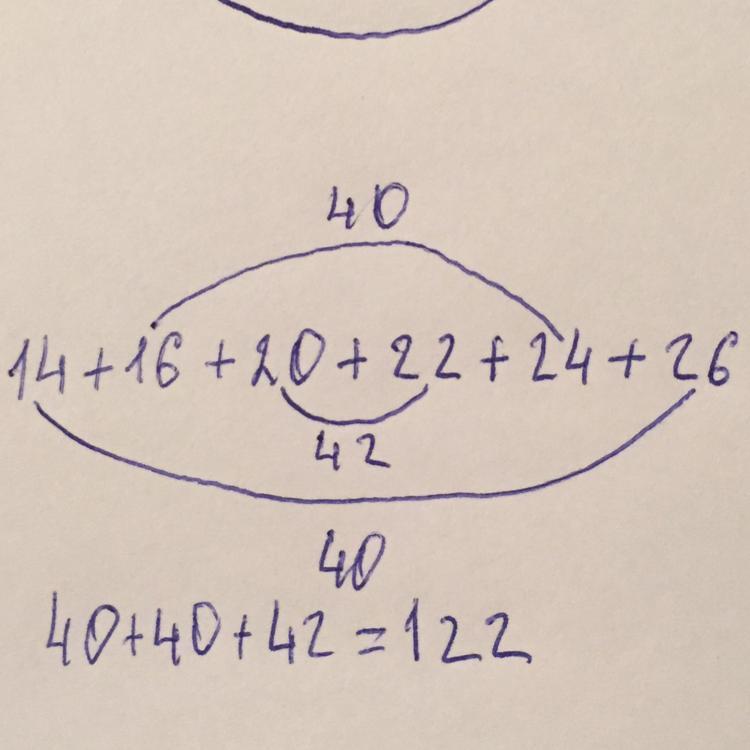 40
14+16+20+22+24+26
42
40
40+40+42=122